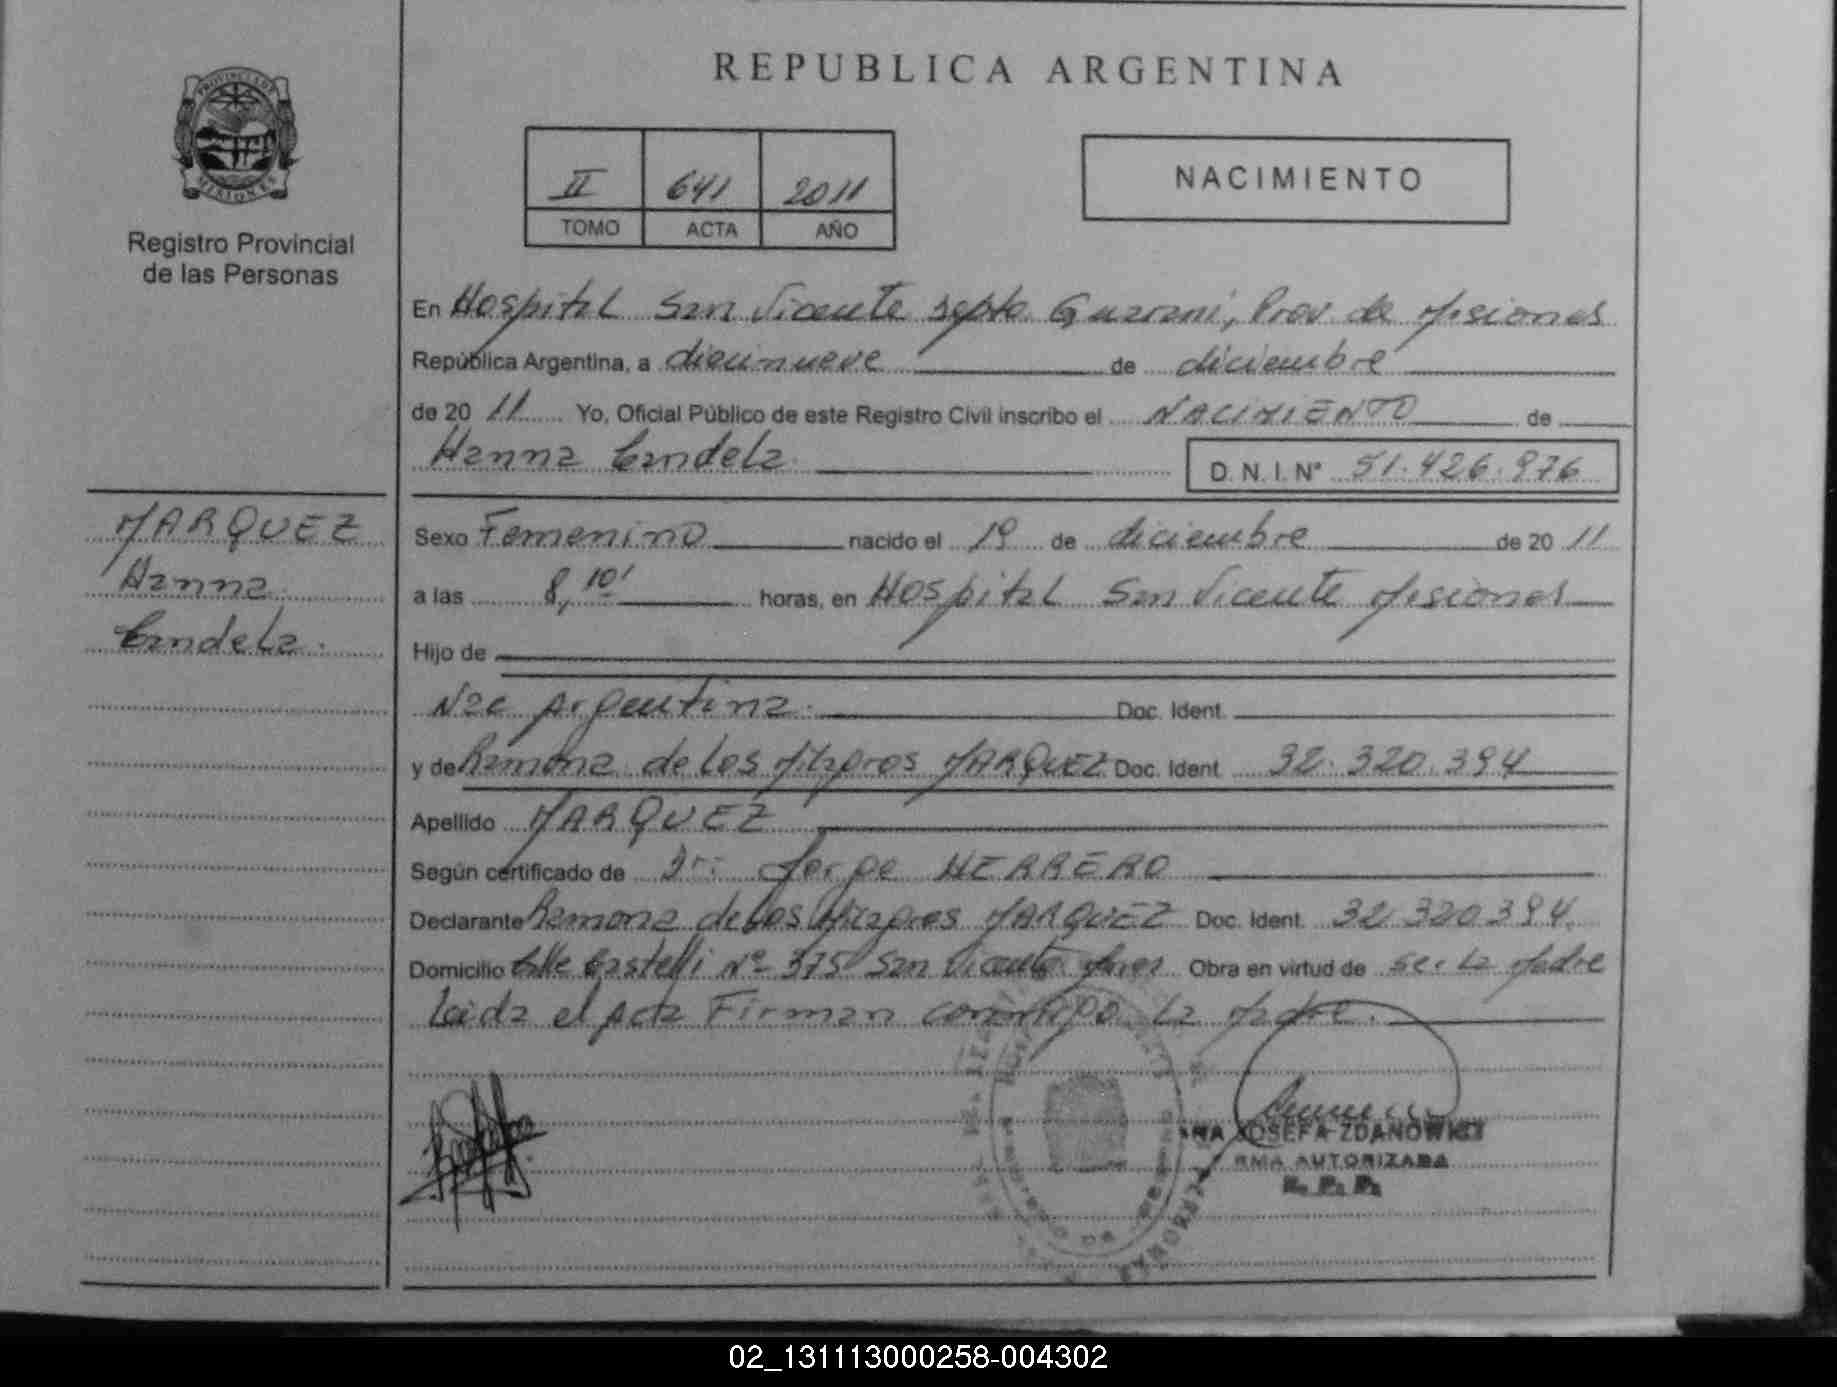 REPUBLICA ARGENTINA
PROVINCIA DE
MISIONES
Registro Provincial
de las Personas
II 641 2011
TOMO ACTA AÑO
NACIMIENTO
En Hospital San Vicente Depto Guarani, Prov de Misiones
República Argentina, a diecinueve de diciembre
de 20 11 Yo, Oficial Público de este Registro Civil inscribo el NACIMIENTO de
Hanna Candela
D. N. I. Nº 51.426.976
MARQUEZ
Hanna
Candela.
Sexo Femenino nacido el 19 de diciembre de 20 11
a las 8,10' horas, en Hospital San Vicente Misiones
Hijo de
Nac Argentina. Doc. Ident.
y de Ramona de los Milagros MARQUEZ Doc. Ident. 32.320.394
Apellido MARQUEZ
Según certificado de Dr: Jorge HERRERO
Declarante Ramona de los Milagros MARQUEZ Doc. Ident. 32.320.394.
Domicilio Calle Castelli Nº 375 San Vicente Mnes Obra en virtud de ser la Madre
Leida el Acta Firman conmigo la Madre.
JOSEFA ZDANOWICZ
AUTORIZADA
R. P. P.
02_131113000258-004302